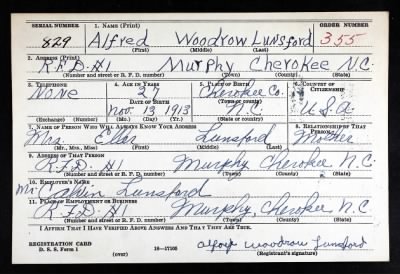 SERIAL NUMBER 1. NAME (Print) ORDER NUMBER
829 Alfred Woodrow Lunsford 355
(First) (Middle) (Last)
2. ADDRESS (Print)
R.F.D. #1 Murphy Cherokee N.C.
(Number and street or R. F. D. number) (Town) (County) (State)
3. TELEPHONE 4. AGE IN YEARS 5. PLACE OF BIRTH 6. COUNTRY OF CITIZENSHIP
None 27 Cherokee Co.
DATE OF BIRTH
Nov. 13 1913 N.C. U.S.A.
(Exchange) (Number) (Mo.) (Day) (Yr.) (State or country)
7. NAME OF PERSON WHO WILL ALWAYS KNOW YOUR ADDRESS 8. RELATIONSHIP OF THAT PERSON
Mrs. Ella Lunsford Mother
(Mr., Mrs., Miss) (First) (Middle) (Last)
9. ADDRESS OF THAT PERSON
R.F.D. #1 Murphy Cherokee N.C.
(Number and street or R. F. D. number) (Town) (County) (State)
10. EMPLOYER'S NAME
Mr. Lunsford
11. PLACE OF EMPLOYMENT OR BUSINESS
R.F.D. #1 Murphy, Cherokee, N.C.
(Number and street or R. F. D. number) (Town) (County) (State)
I AFFIRM THAT I HAVE VERIFIED ABOVE ANSWERS AND THAT THEY ARE TRUE.
REGISTRATION CARD
D. S. S. Form 1 (over) 16—17105 Woodrow Lunsford
(Registrant's signature)